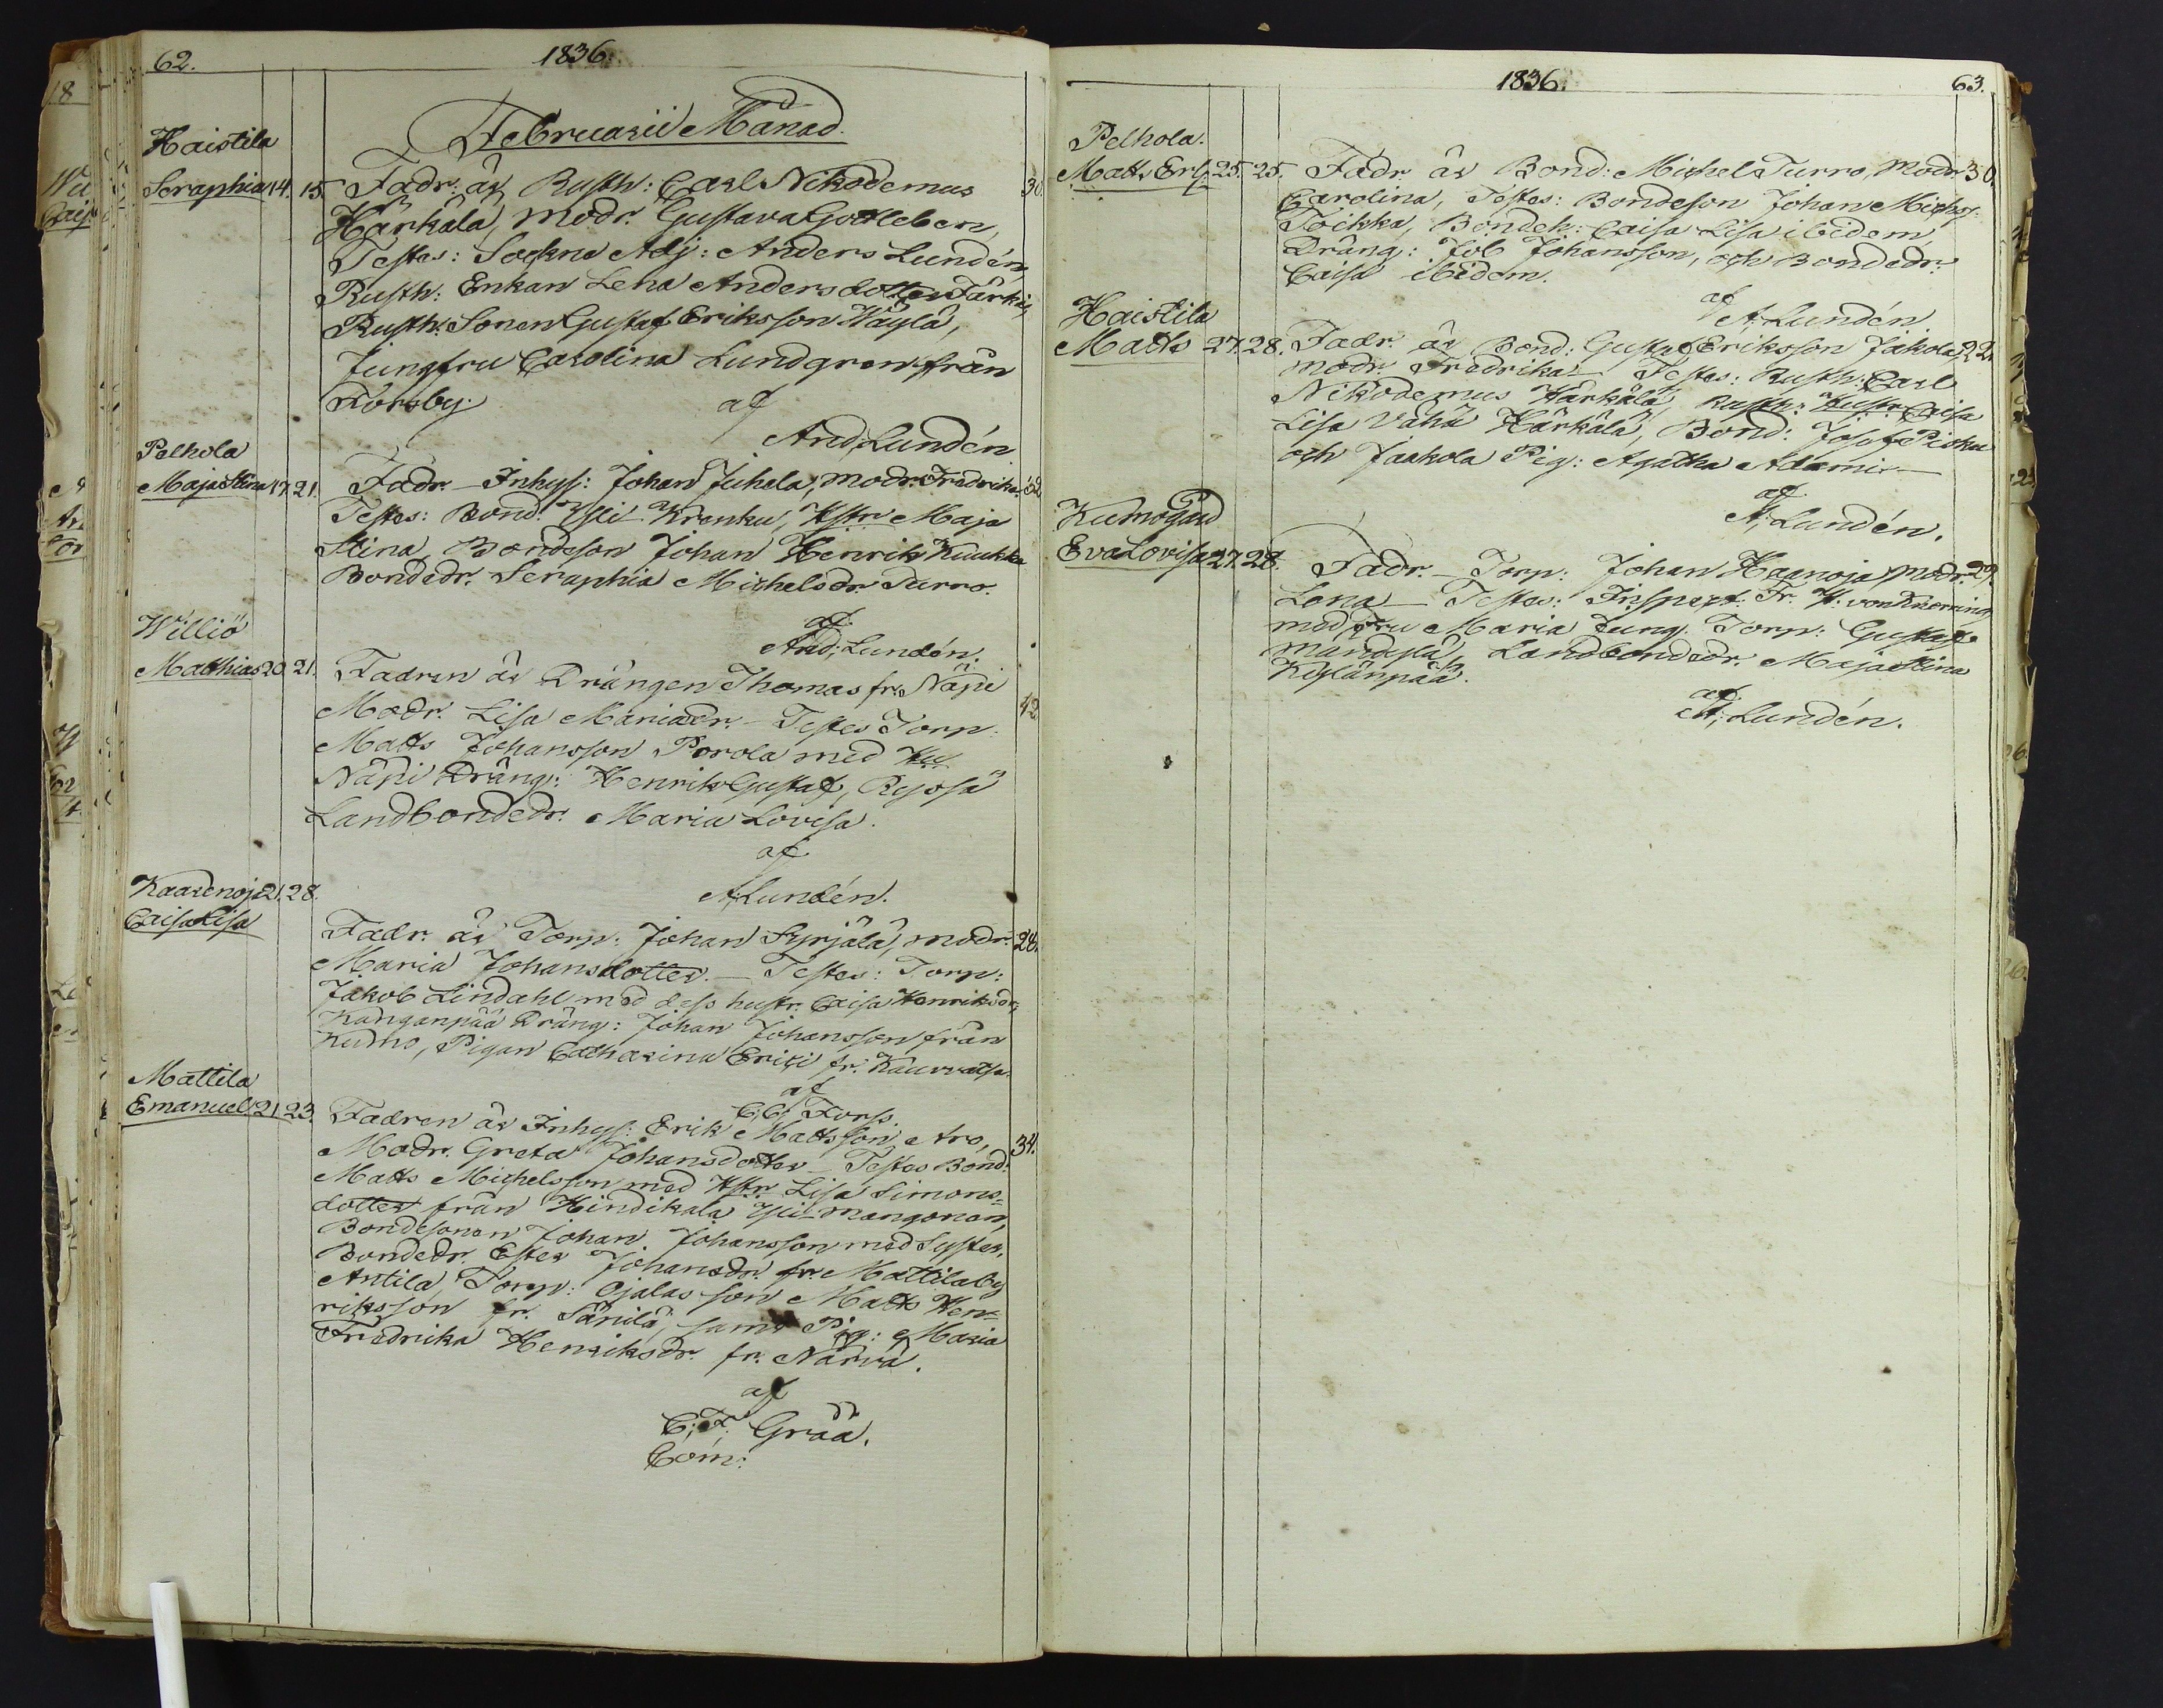 62.
1836.
Februarii Månad.
Haistila
Seraphia 14. 15. Fadr. är Rusth: Carl Nikodemus 30.
Härkälä, Modr. Gustava Gottleben,
Testes: Sockne Adj: Anders Lundén,
Rusth: Enkan Lena Andersdotter Färkki,
Rusth: Sonen Gustaf Eriksson Näylä,
Jungfru Carolina Lundgren från
Torsby.
af
And. Lundén
Pelhola
Maja Stina 17. 21. Fadr. Inhys: Johan Juhela, modr. Fredrika. 32
Testes: Bond: Yli Krenku, Hstr Maja
Stina, Bondeson Johan Henrik Kuukka
Bondedr. Seraphia Michelsdr. Turro.
af
And; Lundén.
Williö
Matthias 20. 21. Fadren är Drängen Thomas fr. Näpi
Modr. Lisa Mariadr. Testes Torp. 42.
Matts Johansson Porola med Hu.
Näpi Dräng: Henrik Gustaf, Rejosä
Landbondedr. Maria Lovisa.
af
A. Lundén.
Kaarenoja 21. 28.
Caisa Lisa
Fadr. är Torp: Johan Syrjälä, modr. 28.
Maria Johansdotter. Testes: Torp:
Jakob Lindahl med dess hustr. Caisa Henriksdr,
Kanganpää Dräng: Johan Johansson från
Kumo, Pigan Catharina Erici fr. Kauvvatsa.
af
C. C. Forss.
Mattila
Emanuel 21. 23. Fadren är Inhys: Erik Mattsson Aro, 34.
Modr. Greta Johansdotter Testes Bond:
Matts Michelsson med Hstr Lisa Simons=
dotter från Hindikala Yli-mangonon,
Bondesonen Johan Johansson med Syster,
Bondedr Ester Johansdr. fr. Mattilaby
Antila, Torp: Ojalas son Matts Hen=
riksson fr. Särvilä, samt Pig: Maria
Fredrika Henriksdr. fr. Närvä.
af
C. F. Grää.
Com:
1836.
63.
Pelhola.
Matts Erl. 25. 25. Fadr är Bond: Michel Turro, Modr 30.
Carolina, Testes: Bondeson Johan Michs:
Toikka, Bondeh: Caisa Lisa ibidem
Dräng: Job Johansson, och Bondedr:
Caisa ibidem.
af
A. Lundén
Haistila
Matts 27. 28. Fadr är Bond: Gustaf Eriksson Jakola, 22.
modr. Fredrika Testes: Rusth: Carl
Nikodemus Härkälä, Rusth: Hustr. Caisa
Lisa Vähä Härkälä, Bond: Josef Pioku
och Jaakola Pig: Agatha Adami
af
A; Lundén.
Kumogård
Eva Lovisa 27. 28. Fadr. Torp: Johan Haanoja, Modr. 29.
Lena Testes: Inspect: Fr. H. von Knorring
med Fru Maria Jung. Torp: Gustaf
Mandelä, Landbondedr. Maja Stina
Kylänpää.
af
A; Lundén.